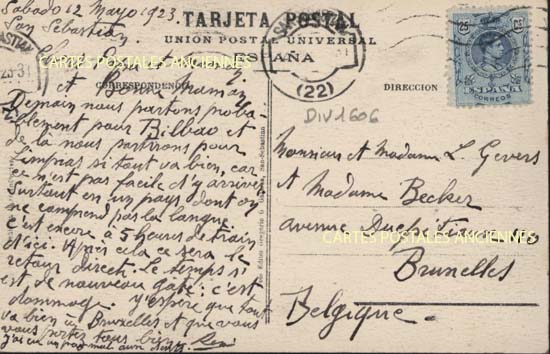 Sabado 12 Mayo 1923
San Sebastian
TARJETA POSTAL
UNION POSTAL UNIVERSAL
ESPAÑA
CORRESPONDENCIA
DIRECCION
(22)
25
25
CORREOS
DIV1606
et Bonne maman
Demain nous partons proba-
blement pour Bilbao et
de là nous partirons pour
Limpias si tout va bien, car
ce n'est pas facile d'y arriver
surtout en un pays dont on
ne comprend pas la langue
c'est encore à 5 heures de train
d'ici. Après cela ce sera le
retour direct. Le temps s'
est de nouveau gâté: c'est
dommage. J'espère que tout
va bien à Bruxelles et que vous
vous portez tous bien.
Monsieur et Madame L. Gevers
et Madame Becker
avenue
Bruxelles
Belgique.
CARTES POSTALES ANCIENNES
CARTES POSTALES ANCIENNES